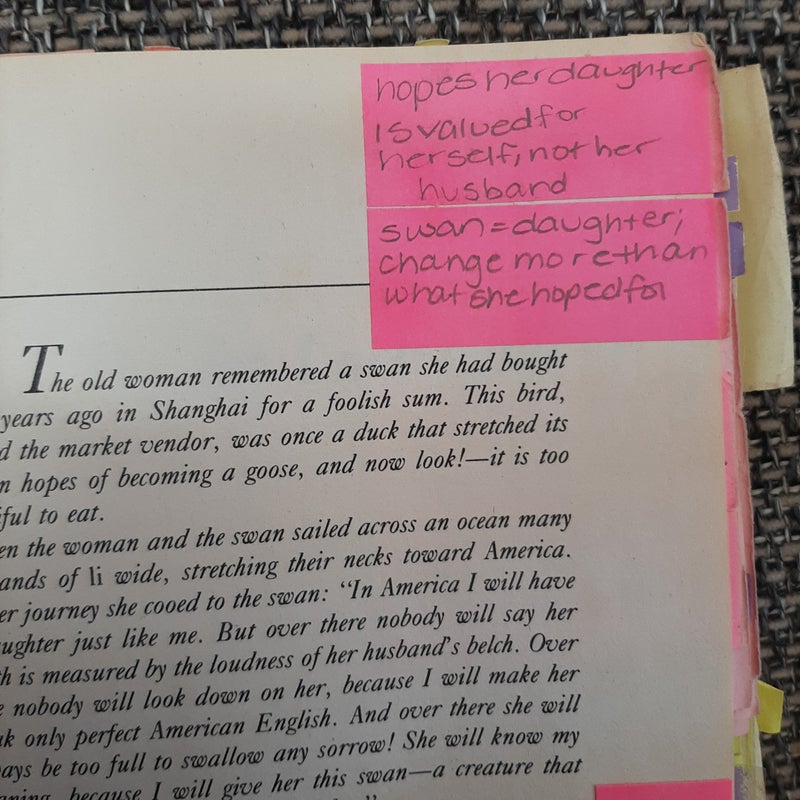 hopes her daughter
is valued for
herself, not her
husband
swan = daughter;
change more than
what she hoped for
The old woman remembered a swan she had bought
years ago in Shanghai for a foolish sum. This bird,
the market vendor, was once a duck that stretched its
hopes of becoming a goose, and now look!—it is too
to eat.
the woman and the swan sailed across an ocean many
of li wide, stretching their necks toward America.
journey she cooed to the swan: "In America I will have
just like me. But over there nobody will say her
is measured by the loudness of her husband's belch. Over
nobody will look down on her, because I will make her
only perfect American English. And over there she will
be too full to swallow any sorrow! She will know my
because I will give her this swan—a creature that